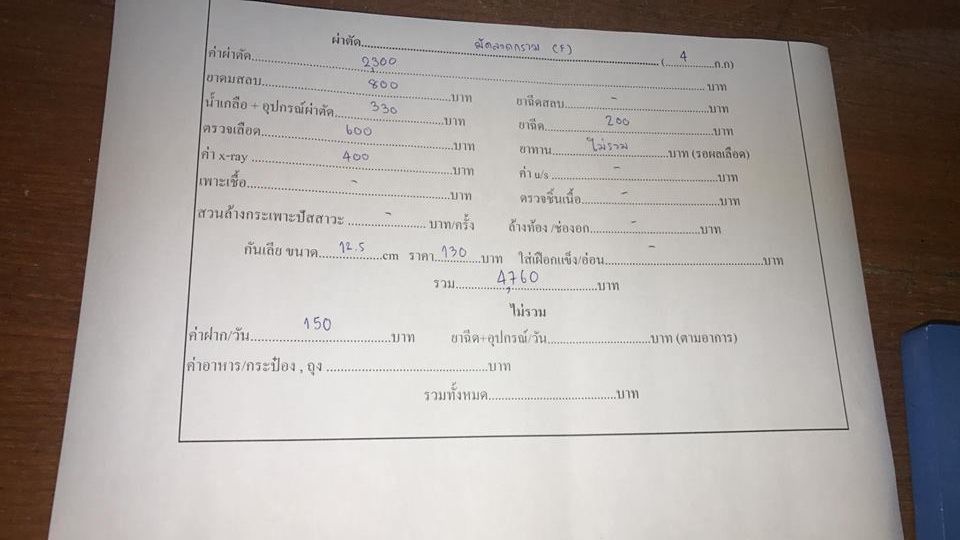 ผ่าตัด.......มัดลวดกราม (F).......(....4....ก.ก)
ค่าผ่าตัด.......2,300.......บาท
ยาดมสลบ.......800.......บาท ยาฉีดสลบ.......-.......บาท
น้ำเกลือ + อุปกรณ์ผ่าตัด.......330.......บาท ยาฉีด.......200.......บาท
ตรวจเลือด.......600.......บาท ยาทาน.......ไม่รวม.......บาท (รอผลเลือด)
ค่า x-ray .......400.......บาท ค่า u/s .......-.......บาท
เพาะเชื้อ.......-.......บาท ตรวจชิ้นเนื้อ.......-.......บาท
สวนล้างกระเพาะปัสสาวะ .......-....... บาท/ครั้ง ล้างท้อง /ช่องอก.......-.......บาท
กันเลีย ขนาด....12.5....cm ราคา....130....บาท ใส่เฝือกแข็ง/อ่อน.......-.......บาท
รวม.......4,760.......บาท
ไม่รวม
ค่าฝาก/วัน.......150.......บาท ยาฉีด+อุปกรณ์/วัน.......บาท (ตามอาการ)
ค่าอาหาร/กระป๋อง , ถุง .......บาท
รวมทั้งหมด.......บาท